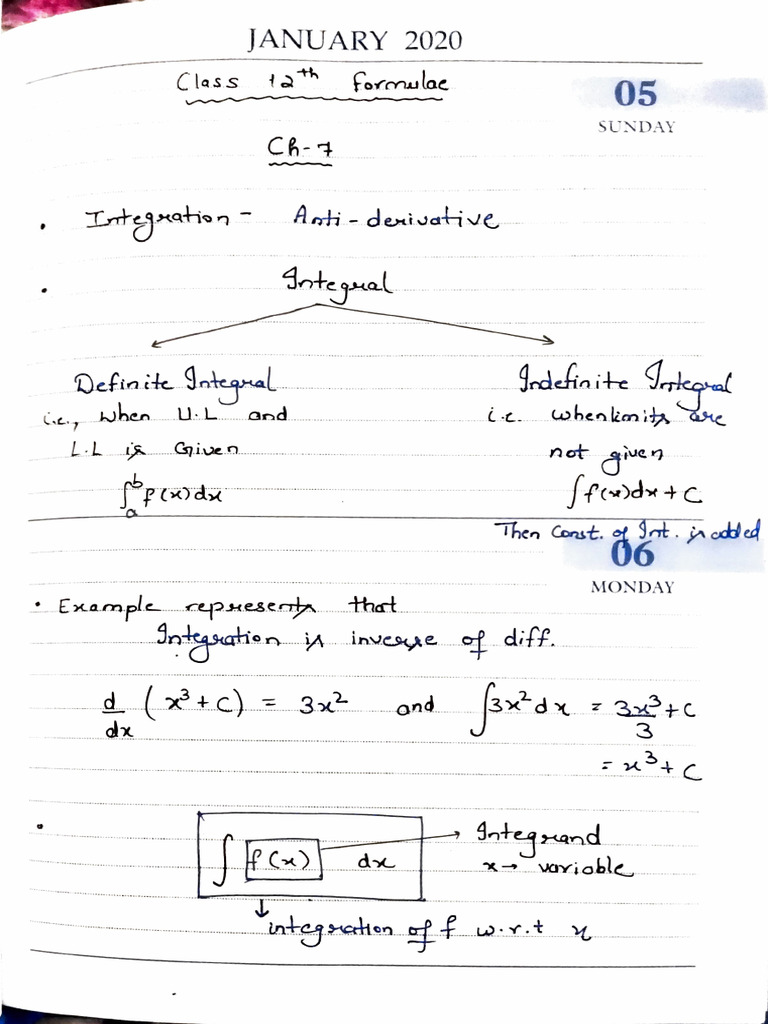 JANUARY 2020
Class 12th formulae
05
SUNDAY
Ch-7
• Integration - Anti-derivative
• Integral
Definite Integral
i.e., when U.L and
L.L is Given
∫ₐᵇ f(x)dx
Indefinite Integral
i.e. when limits are
not given
∫f(x)dx + C
Then Const. of Int. is added
06
MONDAY
• Example represents that
Integration is inverse of diff.
d/dx (x³ + C) = 3x² and ∫3x² dx = 3x³/3 + C
= x³ + C
• ∫ f(x) dx → Integrand
x → variable
↓ integration of f w.r.t x